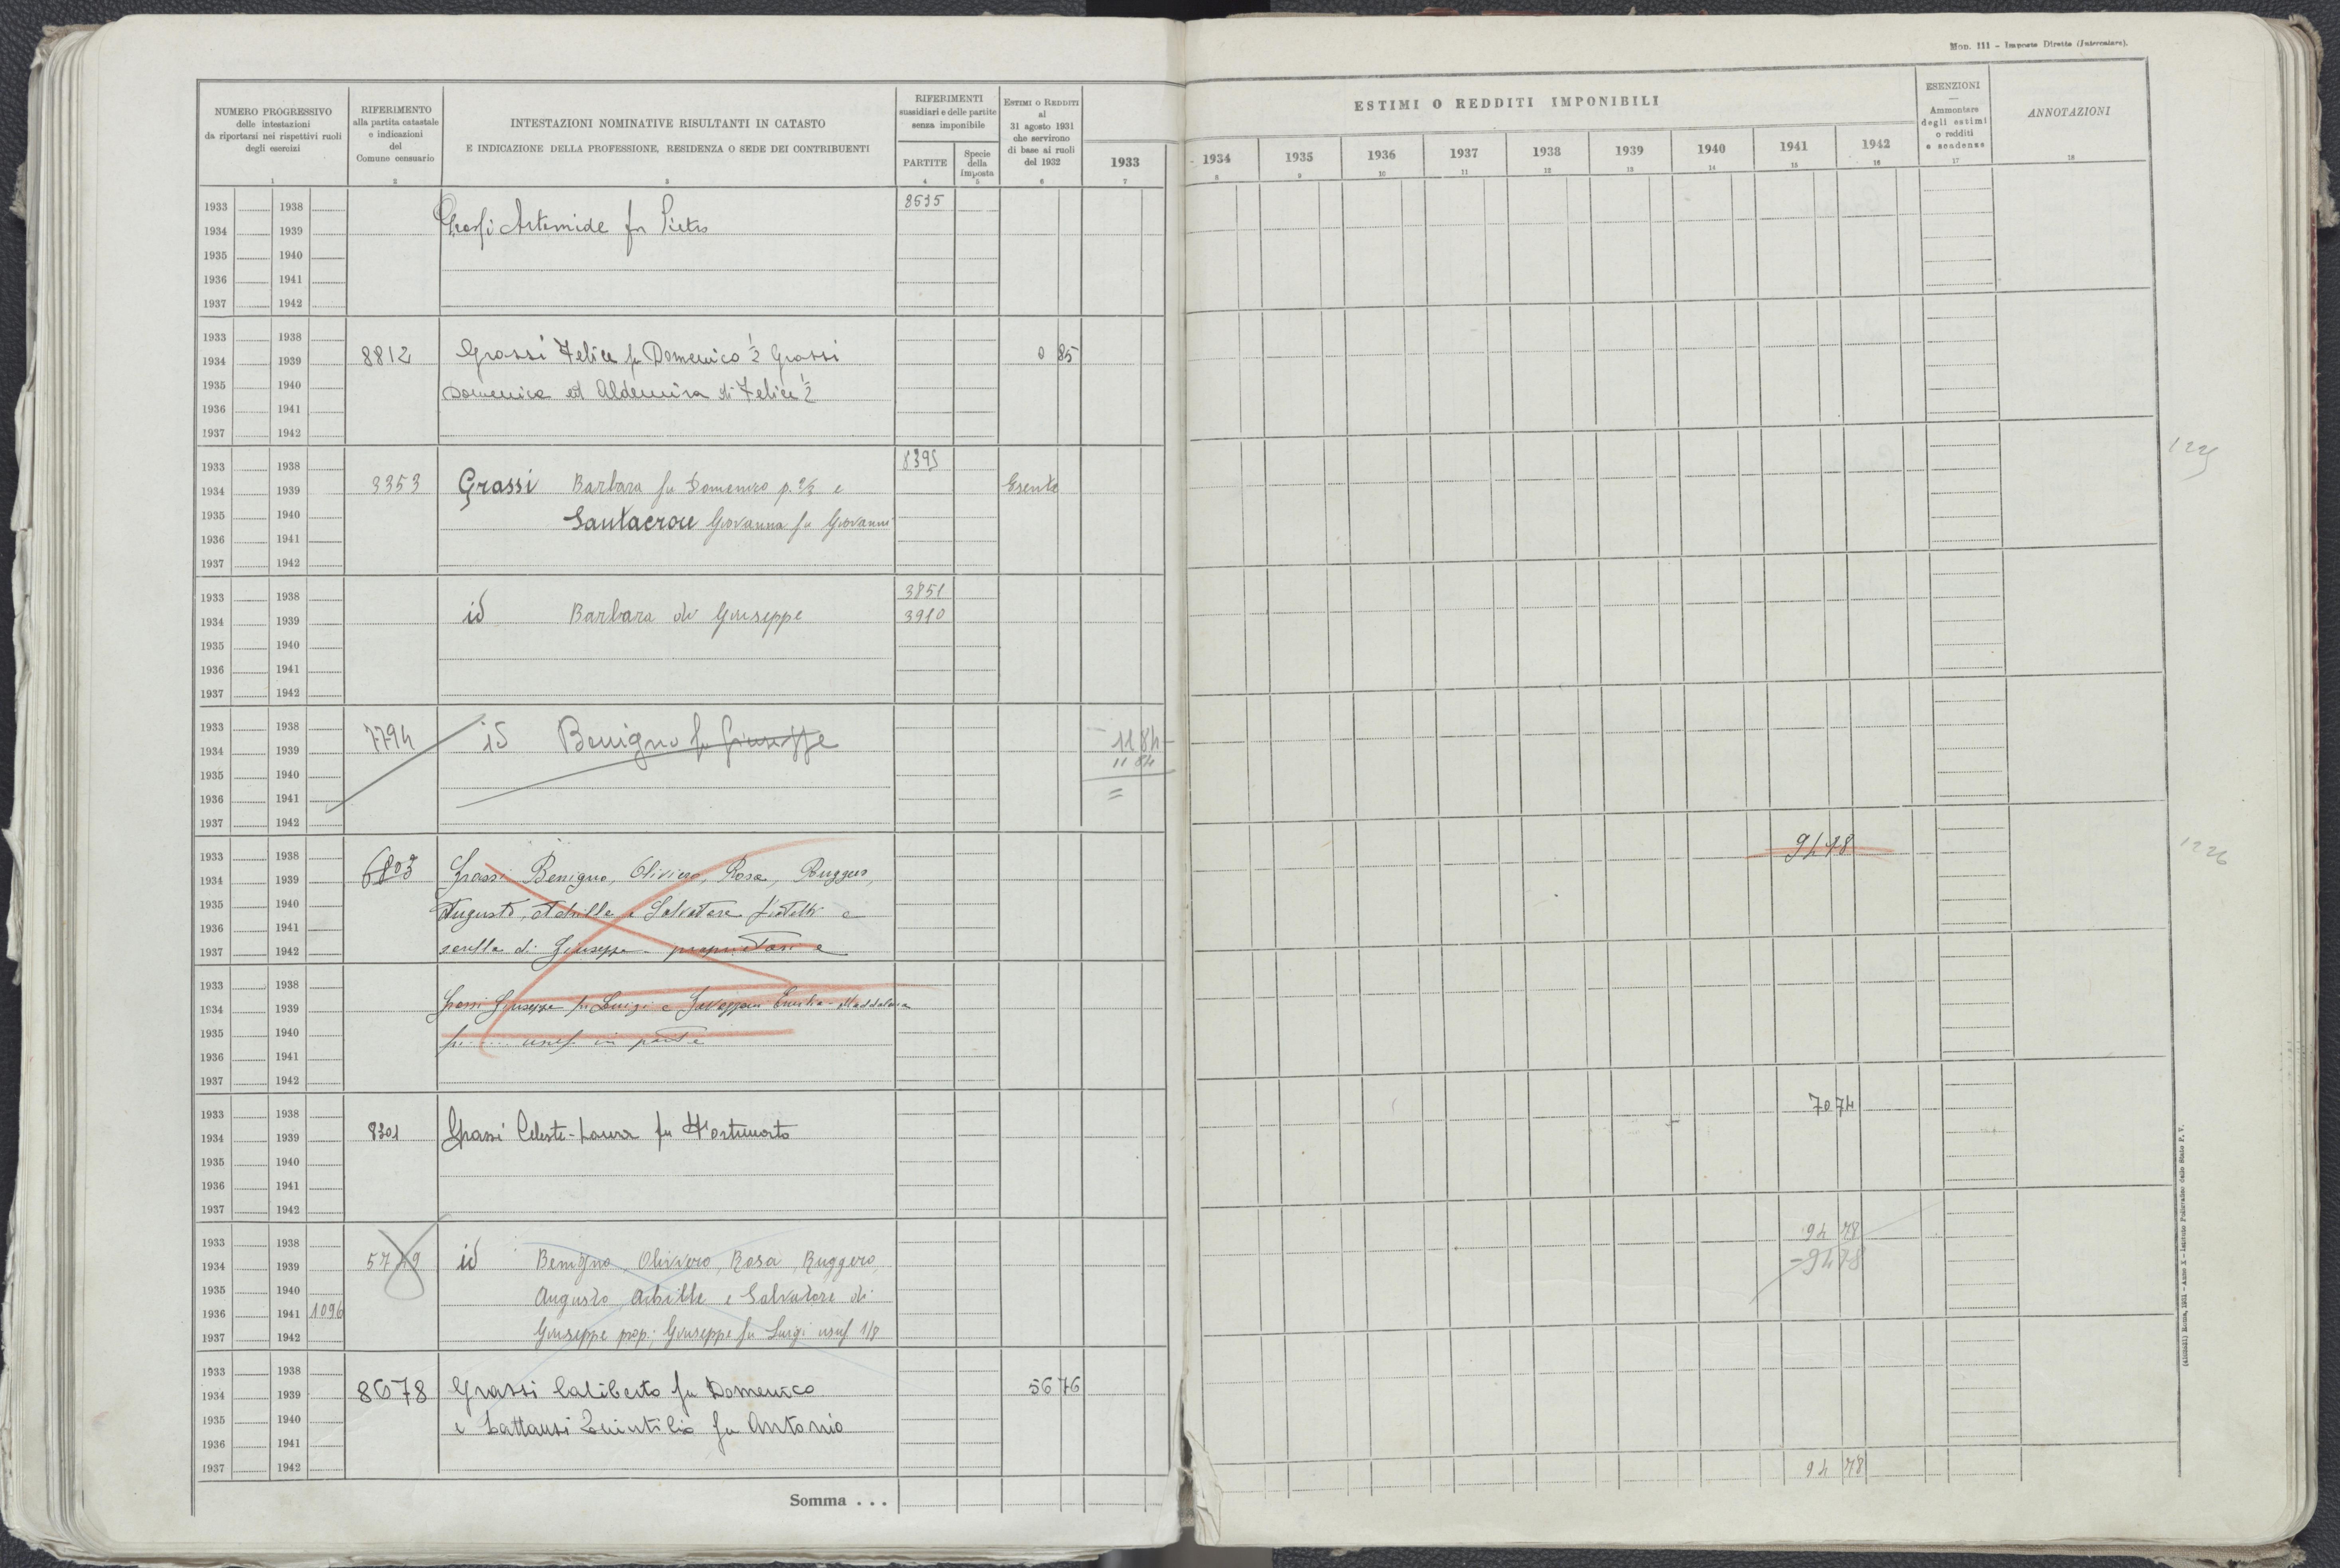 Mod. 111 - Imposte Dirette (Intercalare).
NUMERO PROGRESSIVO
delle intestazioni
da riportarsi nei rispettivi ruoli
degli esercizi
RIFERIMENTO
alla partita catastale
e indicazioni
del
Comune censuario
INTESTAZIONI NOMINATIVE RISULTANTI IN CATASTO
E INDICAZIONE DELLA PROFESSIONE, RESIDENZA O SEDE DEI CONTRIBUENTI
RIFERIMENTI
sussidiari e delle partite
senza imponibile
PARTITE
Specie
della
imposta
ESTIMI O REDDITI
al
31 agosto 1931
che servirono
di base ai ruoli
del 1932
ESTIMI O REDDITI IMPONIBILI
1933 1934 1935 1936 1937 1938 1939 1940 1941 1942
ESENZIONI
Ammontare
degli estimi
o redditi
e scadenze
ANNOTAZIONI
1 2 3 4 5 6 7 8 9 10 11 12 13 14 15 16 17 18
1933 1938 8635
1934 1939 Grassi Artemide fu Pietro
1935 1940
1936 1941
1937 1942
1933 1938
1934 1939 8812 Grassi Felice fu Domenico 1/2 Grassi 0 85
1935 1940 Domenica ed Aldemira di Felice 1/2
1936 1941
1937 1942
1933 1938 8395 1225
1934 1939 3353 Grassi Barbara fu Domenico p. 2/3 e Esente
1935 1940 Santacroce Giovanna fu Giovanni
1936 1941
1937 1942
1933 1938 3851
1934 1939 id Barbara di Giuseppe 3910
1935 1940
1936 1941
1937 1942
1933 1938 7794 id Benigno fu Giuseppe 11 84
1934 1939 11 84
1935 1940 =
1936 1941
1937 1942
1933 1938 6803 94 78 1226
1934 1939 Grassi Benigno, Oliviero, Rosa, Ruggero,
1935 1940 Augusto, Achille e Salvatore fratelli e
1936 1941
1937 1942 sorella di Giuseppe proprietari e
1933 1938
1934 1939 Grassi Giuseppe fu Luigi e Emilia-Maddalena
1935 1940 fu .... usuf. in parte
1936 1941
1937 1942
1933 1938 70 74
1934 1939 8301 Grassi Celeste-Laura fu Fortunato
1935 1940
1936 1941
1937 1942
1933 1938 94 78
1934 1939 5749 id Benigno, Oliviero, Rosa, Ruggero, - 94 78
1935 1940 Augusto, Achille e Salvatore di
1936 1941 1096
1937 1942 Giuseppe prop.; Giuseppe fu Luigi usuf 1/8
1933 1938
1934 1939 8678 Grassi Caliberto fu Domenico 56 76
1935 1940 e Lattanzi Quintilio fu Antonio
1936 1941
1937 1942 94 78
Somma . . .
Roma, 1931 - Anno X - Istituto Poligrafico dello Stato P. V.